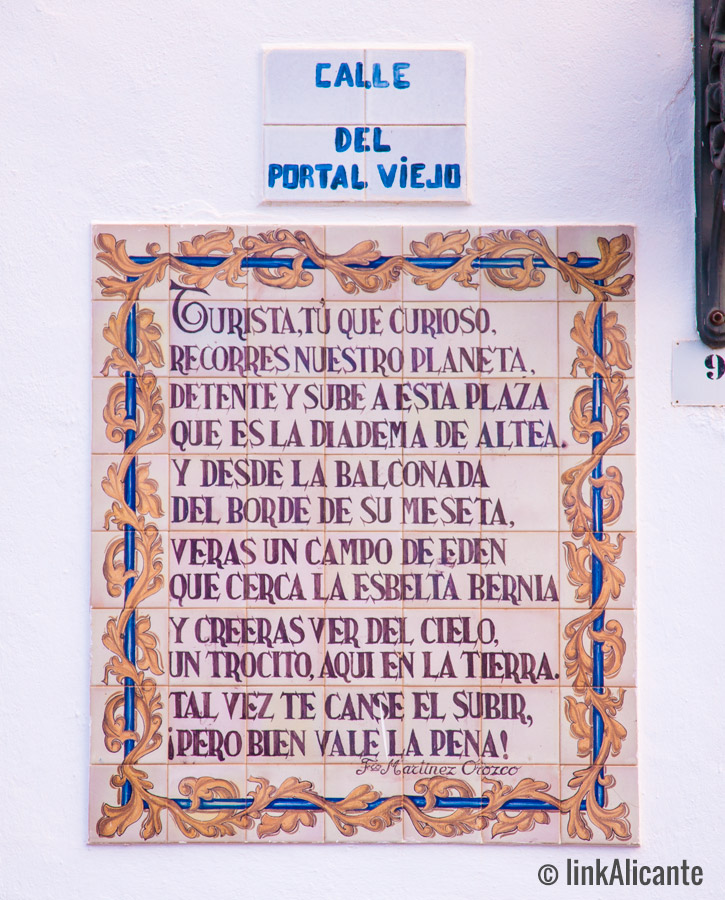 CALLE
DEL
PORTAL VIEJO
TURISTA, TÚ QUE CURIOSO,
RECORRES NUESTRO PLANETA,
DETENTE Y SUBE A ESTA PLAZA
QUE ES LA DIADEMA DE ALTEA.
Y DESDE LA BALCONADA
DEL BORDE DE SU MESETA,
VERAS UN CAMPO DE EDEN
QUE CERCA LA ESBELTA BERNIA
Y CREERAS VER DEL CIELO,
UN TROCITO, AQUI EN LA TIERRA.
TAL VEZ TE CANSE EL SUBIR,
¡PERO BIEN VALE LA PENA!
Fco Martinez Orozco
9
© linkAlicante